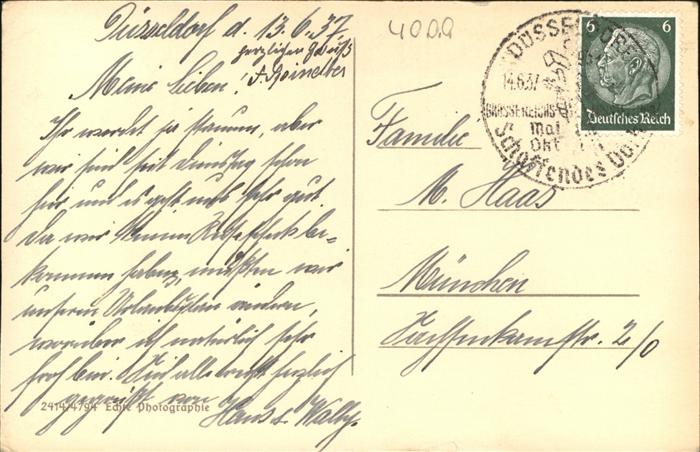 Düsseldorf d. 13.6.37
herzlichen Gruß
Meine Lieben!
Ihr werdet ja staunen, aber
wir sind seit Dienstag schon
hier und es geht uns sehr gut.
Da wir keinen be-
kommen haben, mußten wir
unseren ändern,
worüber ich natürlich sehr
froh bin. Seid alle recht herzlich
gegrüßt von
Hans u. Wally.
2414/4794 Echte Photographie
4000
DÜSSELDORF
14.6.37
Mai
Okt
Schaffendes Volk
6 6
Deutsches Reich
Familie
M. Haas
München
2/0